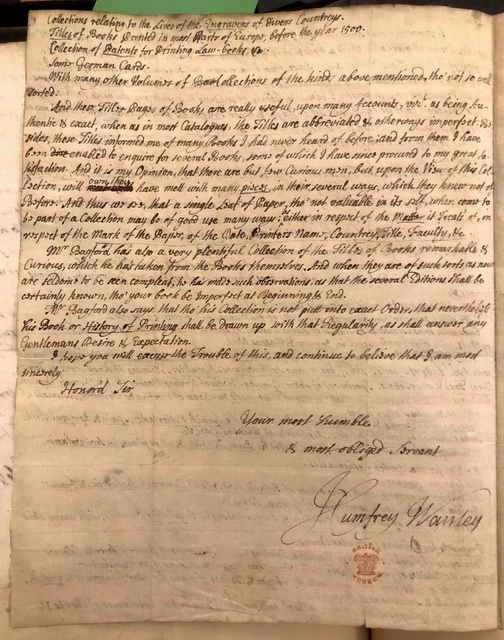 Collections relating to the Lives of the Engravers of divers Countreys.
Titles of Books Printed in most Parts of Europe, before the year 1500.
Collection of Patents for Printing Law-books &c.
Som German Cards.
With many other Volumes of Collections of the kinds above mentioned, tho' not so well
sorted.
And these Title Pages of Books are really useful, upon many Accounts, viz.t as being Au-
thentic & exact, when as in most Catalogues, the Titles are abbreviated & otherways imperfect. Be-
sides, these Titles informed me of many Books I had never heard of before; and from them I have
been enabled to enquire for several Books, som of which I have since procured to my great Sa-
tisfaction. And it is my Opinion, that there are but few Curious men, but upon the View of this Col-
lection, will own they have met with many pieces in their several ways, which they knew not of
Before. And thus we see, that a single Leaf of Paper, tho' not valuable in its self, when come to
be part of a Collection may be of good use many ways: either in respect of the Matter it Treats of, in
respect of the Mark of the Paper, of the Date, Printers Name, Countrey, Title, Faculty, &c.
Mr. Bagford has also a very plentiful Collection of the Titles of Books remarkable &
Curious, which he has taken from the Books themselves. And when they are of such sorts, as now
are seldome to be seen compleat, he has made such observations, as that the several Editions shall be
certainly known, tho' your book be Imperfect at Beginning & End.
Mr. Bagford also says that tho' his Collection is not putt into exact Order, that nevertheless
his Book or History of Printing shall be drawn up with that Regularity, as shall answer any
Gentlemans Desire & Expectation.
I hope you will excuse the Trouble of this, and continue to believe that I am most
sincerely
Honord Sir,
Your most humble
& most obliged Servant
Humfrey Wanley
BRITISH MUSEUM